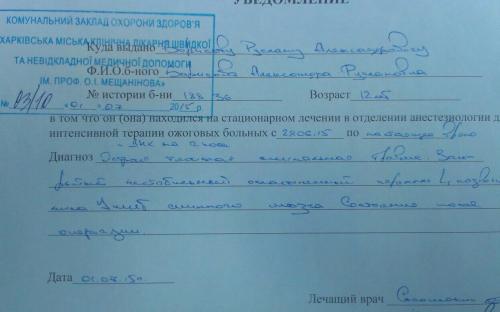 УВЕДОМЛЕНИЕ
КОМУНАЛЬНИЙ ЗАКЛАД ОХОРОНИ ЗДОРОВ'Я
ХАРКІВСЬКА МІСЬКА КЛІНІЧНА ЛІКАРНЯ ШВИДКОЇ
ТА НЕВІДКЛАДНОЇ МЕДИЧНОЇ ДОПОМОГИ
ІМ. ПРОФ. О.І. МЕЩАНІНОВА"
№ 93/10 «01» 07 2015 р.
Куда выдано Борисову Руслану Александровичу
Ф.И.О.б-ного Борисова Александра Руслановича
№ истории б-ни Возраст 12 лет
в том что он (она) находился на стационарном лечении в отделении анестезиологии
интенсивной терапии ожоговых больных с 28.06.15 по настоящее время
Диагноз Острая тяжелая спинальная травма.
нестабильный перелом L1
Ушиб спинного мозга Состояние после
операции.
Дата 01.07.15г.
Лечащий врач